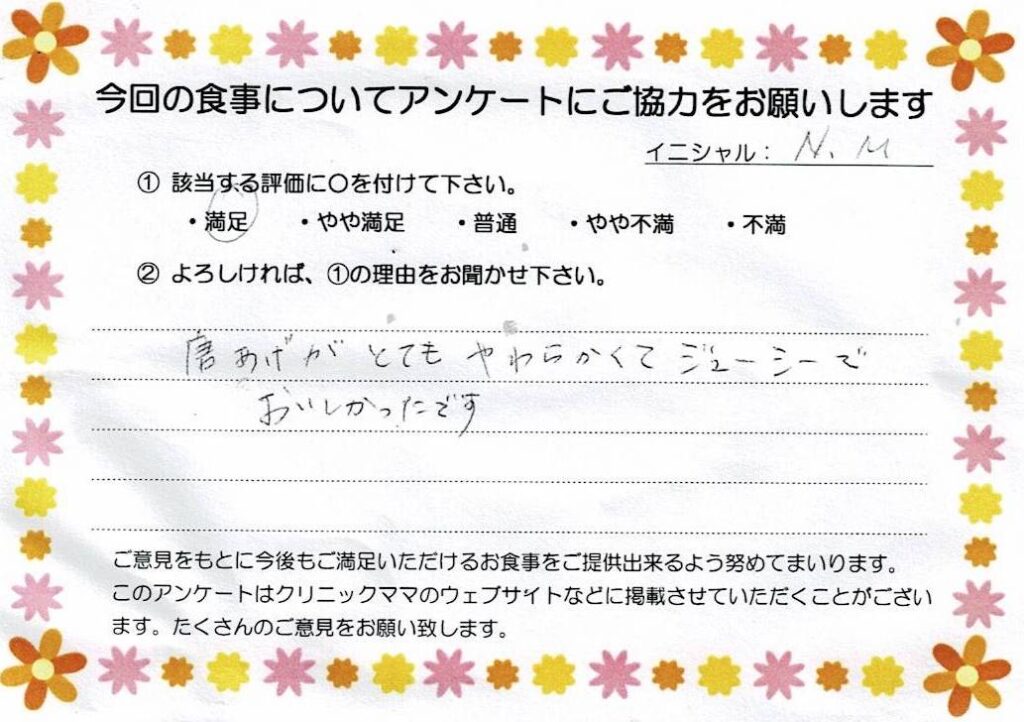 今回の食事についてアンケートにご協力をお願いします
イニシャル： N. M
① 該当する評価に〇を付けて下さい。
・満足 ・やや満足 ・普通 ・やや不満 ・不満
② よろしければ、①の理由をお聞かせ下さい。
唐あげが とても やわらかくて ジューシーで
おいしかったです
ご意見をもとに今後もご満足いただけるお食事をご提供出来るよう努めてまいります。
このアンケートはクリニックママのウェブサイトなどに掲載させていただくことがござい
ます。たくさんのご意見をお願い致します。